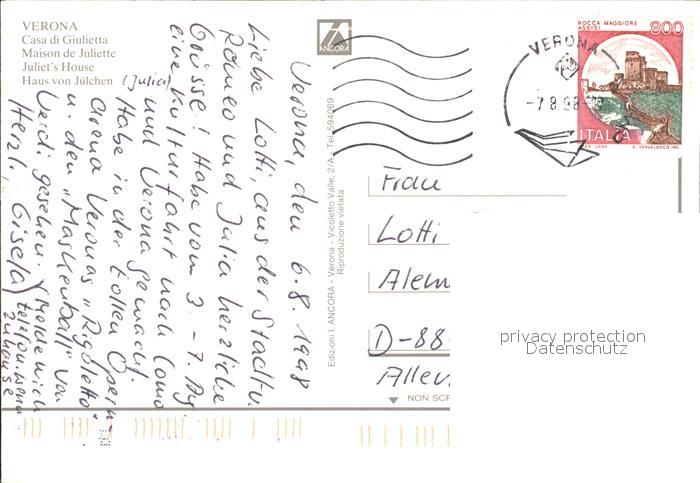 VERONA
Casa di Giulietta
Maison de Juliette
Juliet's House
Haus von Jülchen
(Julia)
ANCORA
Verona, den 6.8.1998
Liebe Lotti, aus der Stadt v.
Romeo und Julia herzliche
Grüsse! Habe vom 3. - 7. Aug.
eine Kulturfahrt nach Como
und Verona gemacht.
Habe in der tollen Opern-
Arena Veronas "Rigoletto"
u den "Maskenball" von
Verdi gesehen. (Melde mich
telefon. wenn
zuhause
Herzl. Gisela
Edizioni l'ANCORA - Verona - Vicoletto Valle, 2/A - Tel. 594069
Riproduzione vietata
VERONA
-7.8.98
ROCCA MAGGIORE
ASSISI
800
ITALIA
Frau
Lotti
Alem
D-88
Allen
NON SCR
privacy protection
Datenschutz